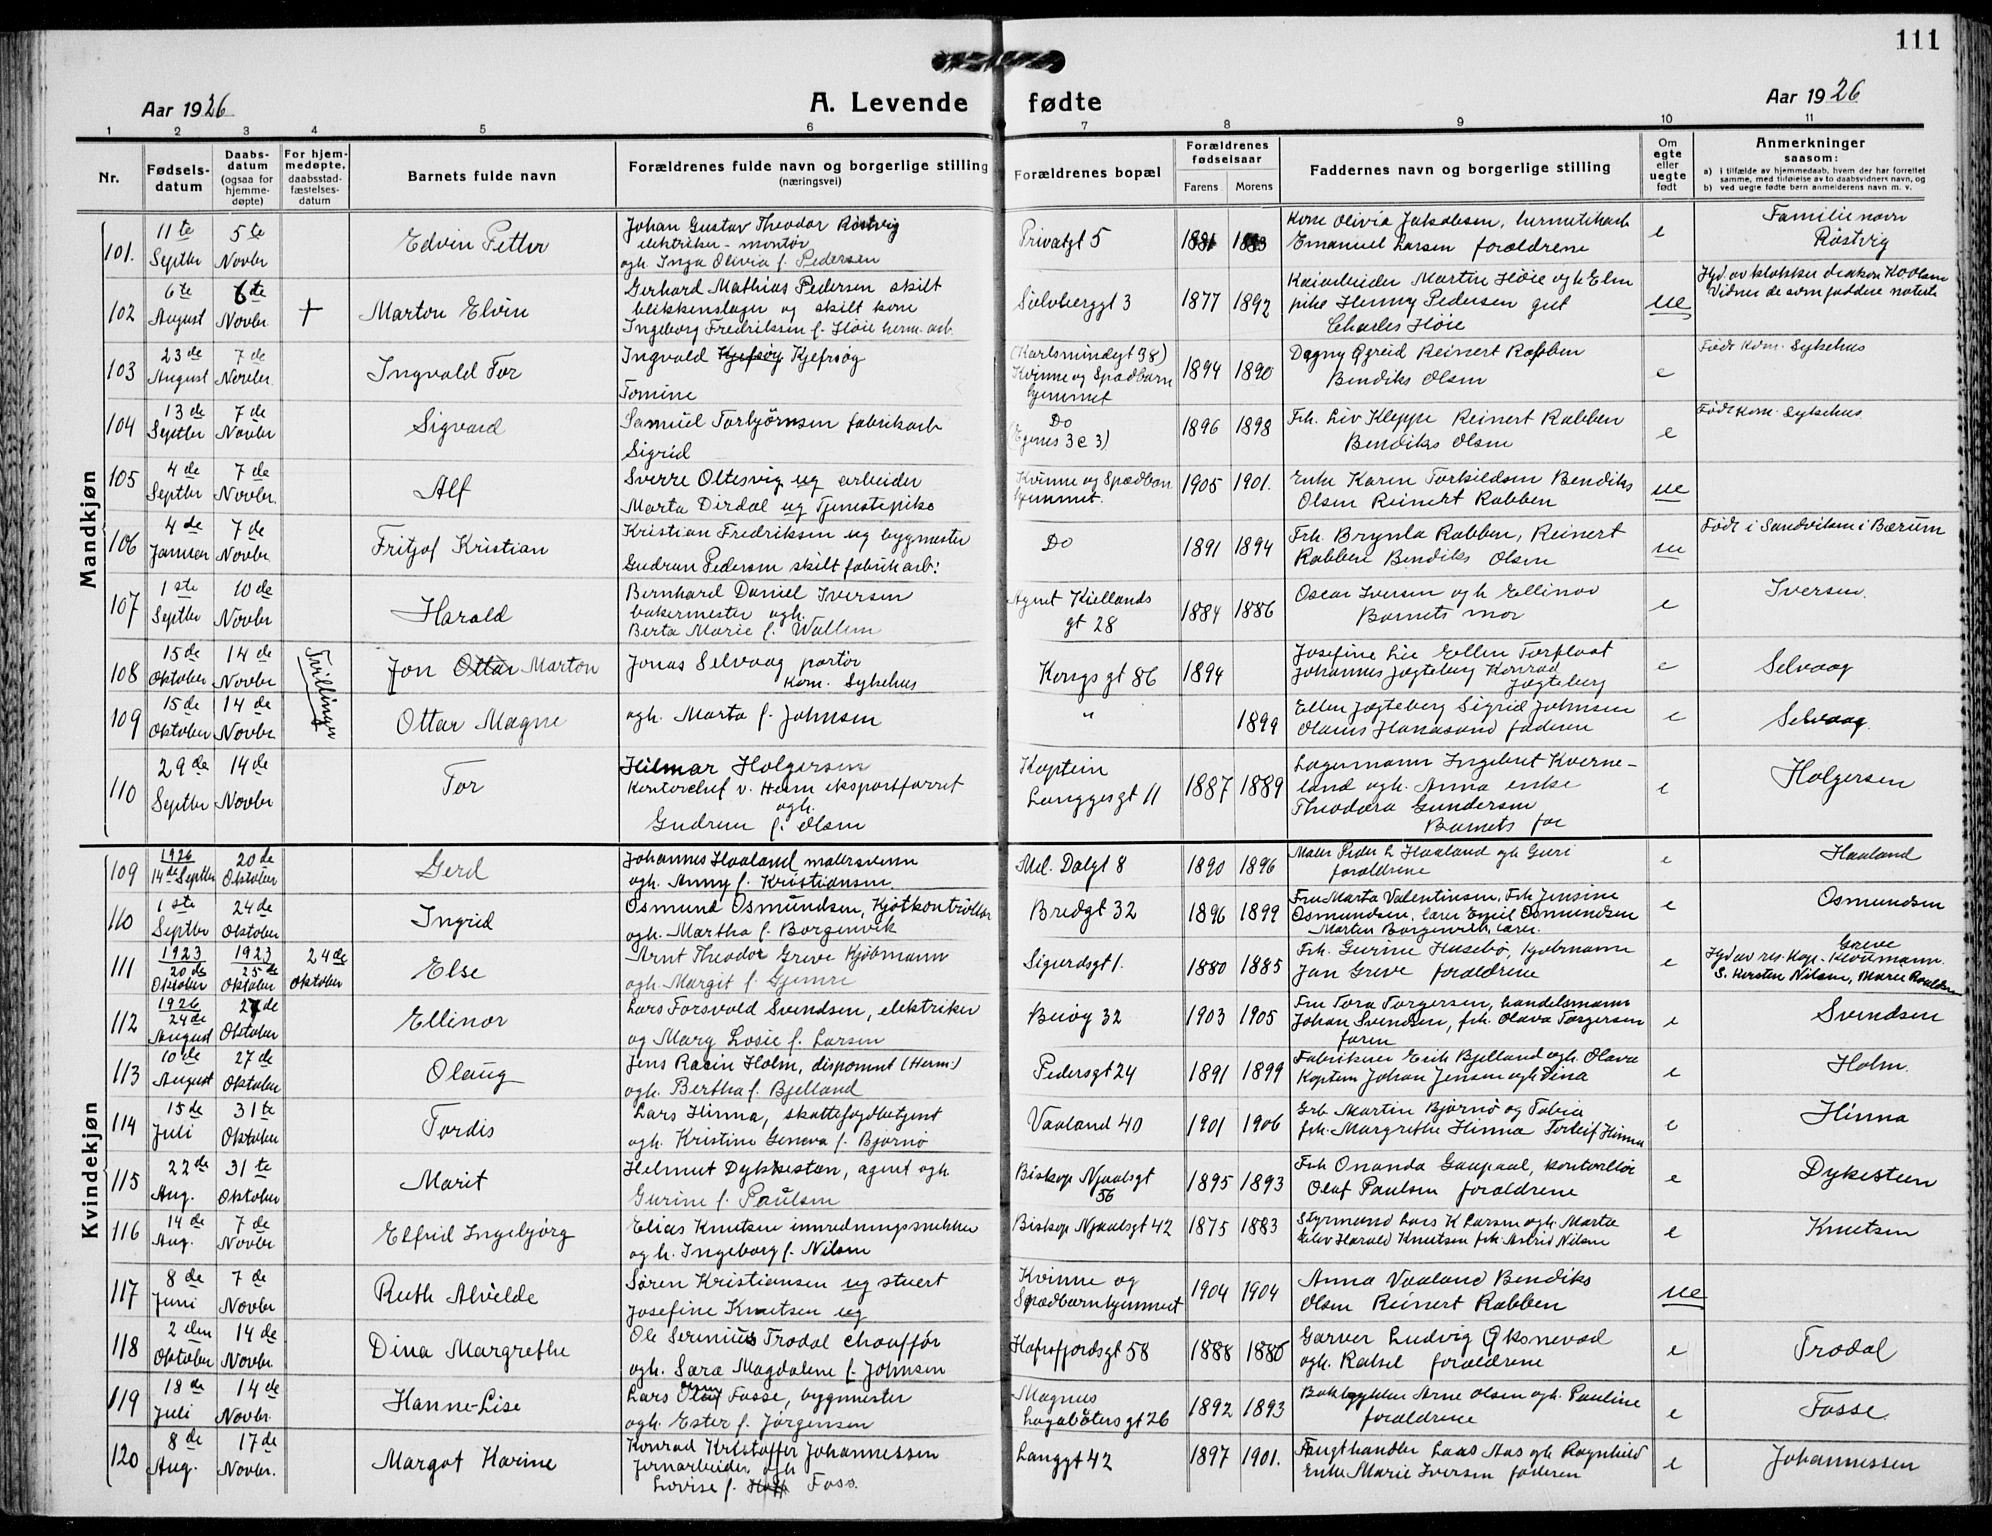 111
Aar 1926
A. Levende fødte
Aar 1926
1 2 3 4 5 6 7 8 9 10 11
Nr.
Fødsels-datum
Daabs-datum (ogsaa for hjemme-døpte)
For hjem-medøpte, daabsstad-fæstelses-datum
Barnets fulde navn
Forældrenes fulde navn og borgerlige stilling (næringsvei)
Forældrenes bopæl
Forældrenes fødselsaar
Farens Morens
Faddernes navn og borgerlige stilling
Om egte eller uegte født
Anmerkninger
saasom:
a) i tilfælde av hjemmedaab, hvem der har forrettet samme, med tilføielse av to daabsvidners navn, og
b) ved uegte fødte børn anmelderens navn m. v.
Mandkjøn
101. 11te Septbr 5te Novbr Edvin Petter
Johan Gustav Theodor Røstvig
elektriker - montør
ogh. Inga Olivia f. Pedersen
Privatgt 5 1881 1883
Kone Olivia Jakobsen, hermetikarb
Emanuel Larsen forældrene
e
Familienavn
Røstvig
102 6te August 6te Novbr + Marton Elvin
Gerhard Mathias Pedersen skilt
blikkenslager og skilt kone
Ingeborg Fredriksen f. Høie herm. arb.
Sølvberggt 3 1877 1892
Kaiarbeider Martin Høie ogh Elen
pike Henny Pedersen gut
Charles Høie
ue
Hjd. av klokker diakon K Oolsen
Vidner de som faddere noterte
103 23de August 7de Novbr. Ingvald Tor
Ingvald Kjefsøy Kjefrsøg
Tomine
(Karlsmindegt 38)
Kvinne og Spædbarn
hjemmet
1894 1890
Dagny Ogreid Reinert Rabben
Bendiks Olsen
e
Født Kom. Sykehus
104 13de Septbr 7de Novbr Sigvard
Samuel Torbjørnsen fabrikarb
Sigrid
Do
(Egenes 3e 3)
1896 1898
Frk. Liv Kleppe Reinert Rabben
Bendiks Olsen
e
Født Kom. Sykehus
105 4de Septbr 7de Novbr. Alf
Sverre Oltesvig ug arbeider
Marta Dirdal ug Tjenestepike
Kvinne og Spædbarn
hjemmet.
1905 1901.
Enke Karen Torkildsen Bendiks
Olsen Reinert Rabben
ue
106 4de Januar 7de Novbr. Fritjof Kristian
Kristian Fredriksen ug bygmester
Gudrun Pedersen skilt fabrikarb:
Do 1891 1894
Frk. Brynla Rabben, Reinert
Rabben Bendiks Olsen
ue
Født i Sandviken i Bærum
107 1ste Septbr 10de Novbr Harald
Bernhard Daniel Iversen
bakermester ogh.
Berta Marie f. Wallem
Agnet Kiellands
gt 28
1884 1886
Oscar Iversen ogh Ellinor
Barnets mor
e
Iversen.
108 15de Oktober 14de Novbr Tvillinger Jon Ottar Marton
Jonas Selvaag portør
Kom. Sykehus
Kongsgt 86 1894
Josefine Lie Ellen Torfloat
Johannes Jøgteberg Konrad
Jøgteberg
e
Selvaag
109 15de Oktober 14de Novbr. Ottar Magne
ogh. Marta f. Johnsen
" 1899
Ellen Jøgteberg Sigrid Johnsen
Olaus Hanasand faderen
e
Selvaag
110 29de Septbr 14de Novbr Tor
Hilmar Holgersen
kontorchef v. Herm eksportforret
ogh.
Gudrun f. Olsen
Kaptein
Langgesgt 11
1887 1889
Lagermann Ingebret Kverne-
land ogh. Anna enke
Theodora Gundersen
Barnets far
e
Holgersen
Kvindekjøn
109 1926 14de Septbr 20de Oktober Gerd
Johannes Haaland malersvenn
ogh. Anny f. Kristiansen
Mel. Dalgt 8 1890 1896
Maler Peder L Haaland ogh Guri
forældrene
e
Haaland
110 1ste Septbr 24de Oktober Ingrid
Osmund Osmundsen, Kjøtkontrollør
ogh. Martha f. Borgenvik
Bredgt 32 1896 1899
Fru Marta Valentinsen, Frk Jensine
Osmundsen. lærer Emil Osmundsen
Martin Borgenvik, lærer.
e
Osmundsen
111 1923 20de Oktober 1923 25de Oktober 24de Oktober Else
Arnt Theodor Greve Kjøbmann
ogh. Margit f. Gjemre
Sigurdsgt 1. 1880 1885
Frk. Gurine Husebø, Kjøbmann
Jan Greve forældrene
e
Greve
Hjd av res. Kap. Kloumann.
S. Kersten Nilsen, Marie Roalds
112 1926 24de August 27de Oktober Ellinor
Lars Torsvald Svendsen, elektriker
og Mary Losie f. Larsen
Beiøg 32 1903 1905
Fru Tora Torgersen, handelsmann
Johan Svendsen, frk. Olava Torgersen
faren
e
Svendsen
113 10de August 27de Oktober Olaug
Jens Rasin Holm, disponent (Herm:)
ogh. Bertha f. Bjelland
Pedersgt 24 1891 1899
Fabrikeier Erik Bjelland ogh. Olava
Kaptein Johan Jensen ogh Dina
e
Holm.
114 15de Juli 31te Oktober Tordis
Lars Hinna, skattefogdbetjent
ogh. Kristine Geneva f. Bjørnø
Vaaland 40 1901 1906
Grb. Martin Bjørnø og Tobia
frk. Margrethe Hinna Torleif Hinna
e
Hinna
115 22de Aug. 31te Oktober Marit
Helmut Dykesteen, agent ogh
Gurine f. Paulsen
Biskop Njaalsgt
56
1895 1893
Frk Onanda Gaupaal, kontorllør
Olaf Paulsen forældrene
e
Dykesteen
116 14de Aug. 7de Novbr Elfrid Ingebjørg
Elias Knutsen innredningssnekker
og h. Ingeborg f. Nilsen
Biskop Njaalsgt 42 1875 1883
Styrmand Lars K Larsen ogh. Marta
Elev Harald Knutsen frk. Astrid Nilsen
e
Knutsen
117 8de Juni 7de Novbr Ruth Alvilde
Søren Kristiansen ug stuert
Josefine Knutsen ug
Kvinne og
Spædbarnhjemmet
1904 1904
Anna Vaaland Bendiks
Olsen Reinert Rabben
ue
118 2den Oktober 14de Novbr. Dina Margrethe
Ole Serinius Trodal chauffør
ogh. Sara Magdalene f. Johnsen
Hafrsfjordsgt 58 1888 1886
Garver Ludvig Oksnevad
ogh. Rakel forældrene
e
Trodal
119 18de Juli 14de Novbr. Hanne-Lise
Lars Fosse, bygmester
ogh. Ester f. Jørgensen
Magnus
Lagabøtersgt 26
1892 1893
Arne Olsen ogh. Pauline
forældrene
e
Fosse.
120 8de Aug. 17de Novbr. Margot Harine
Konrad Kristoffer Johannessen
Jernarbeider ogh
Lovise f. Foss.
Langgt 42 1897 1901.
Laas Aas ogh Ragnhild
Enke Marie Iversen faderen
e
Johannessen